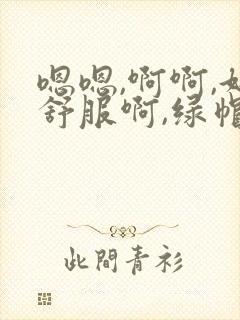 嗯嗯,啊啊,
舒服啊,绿
此間青衫